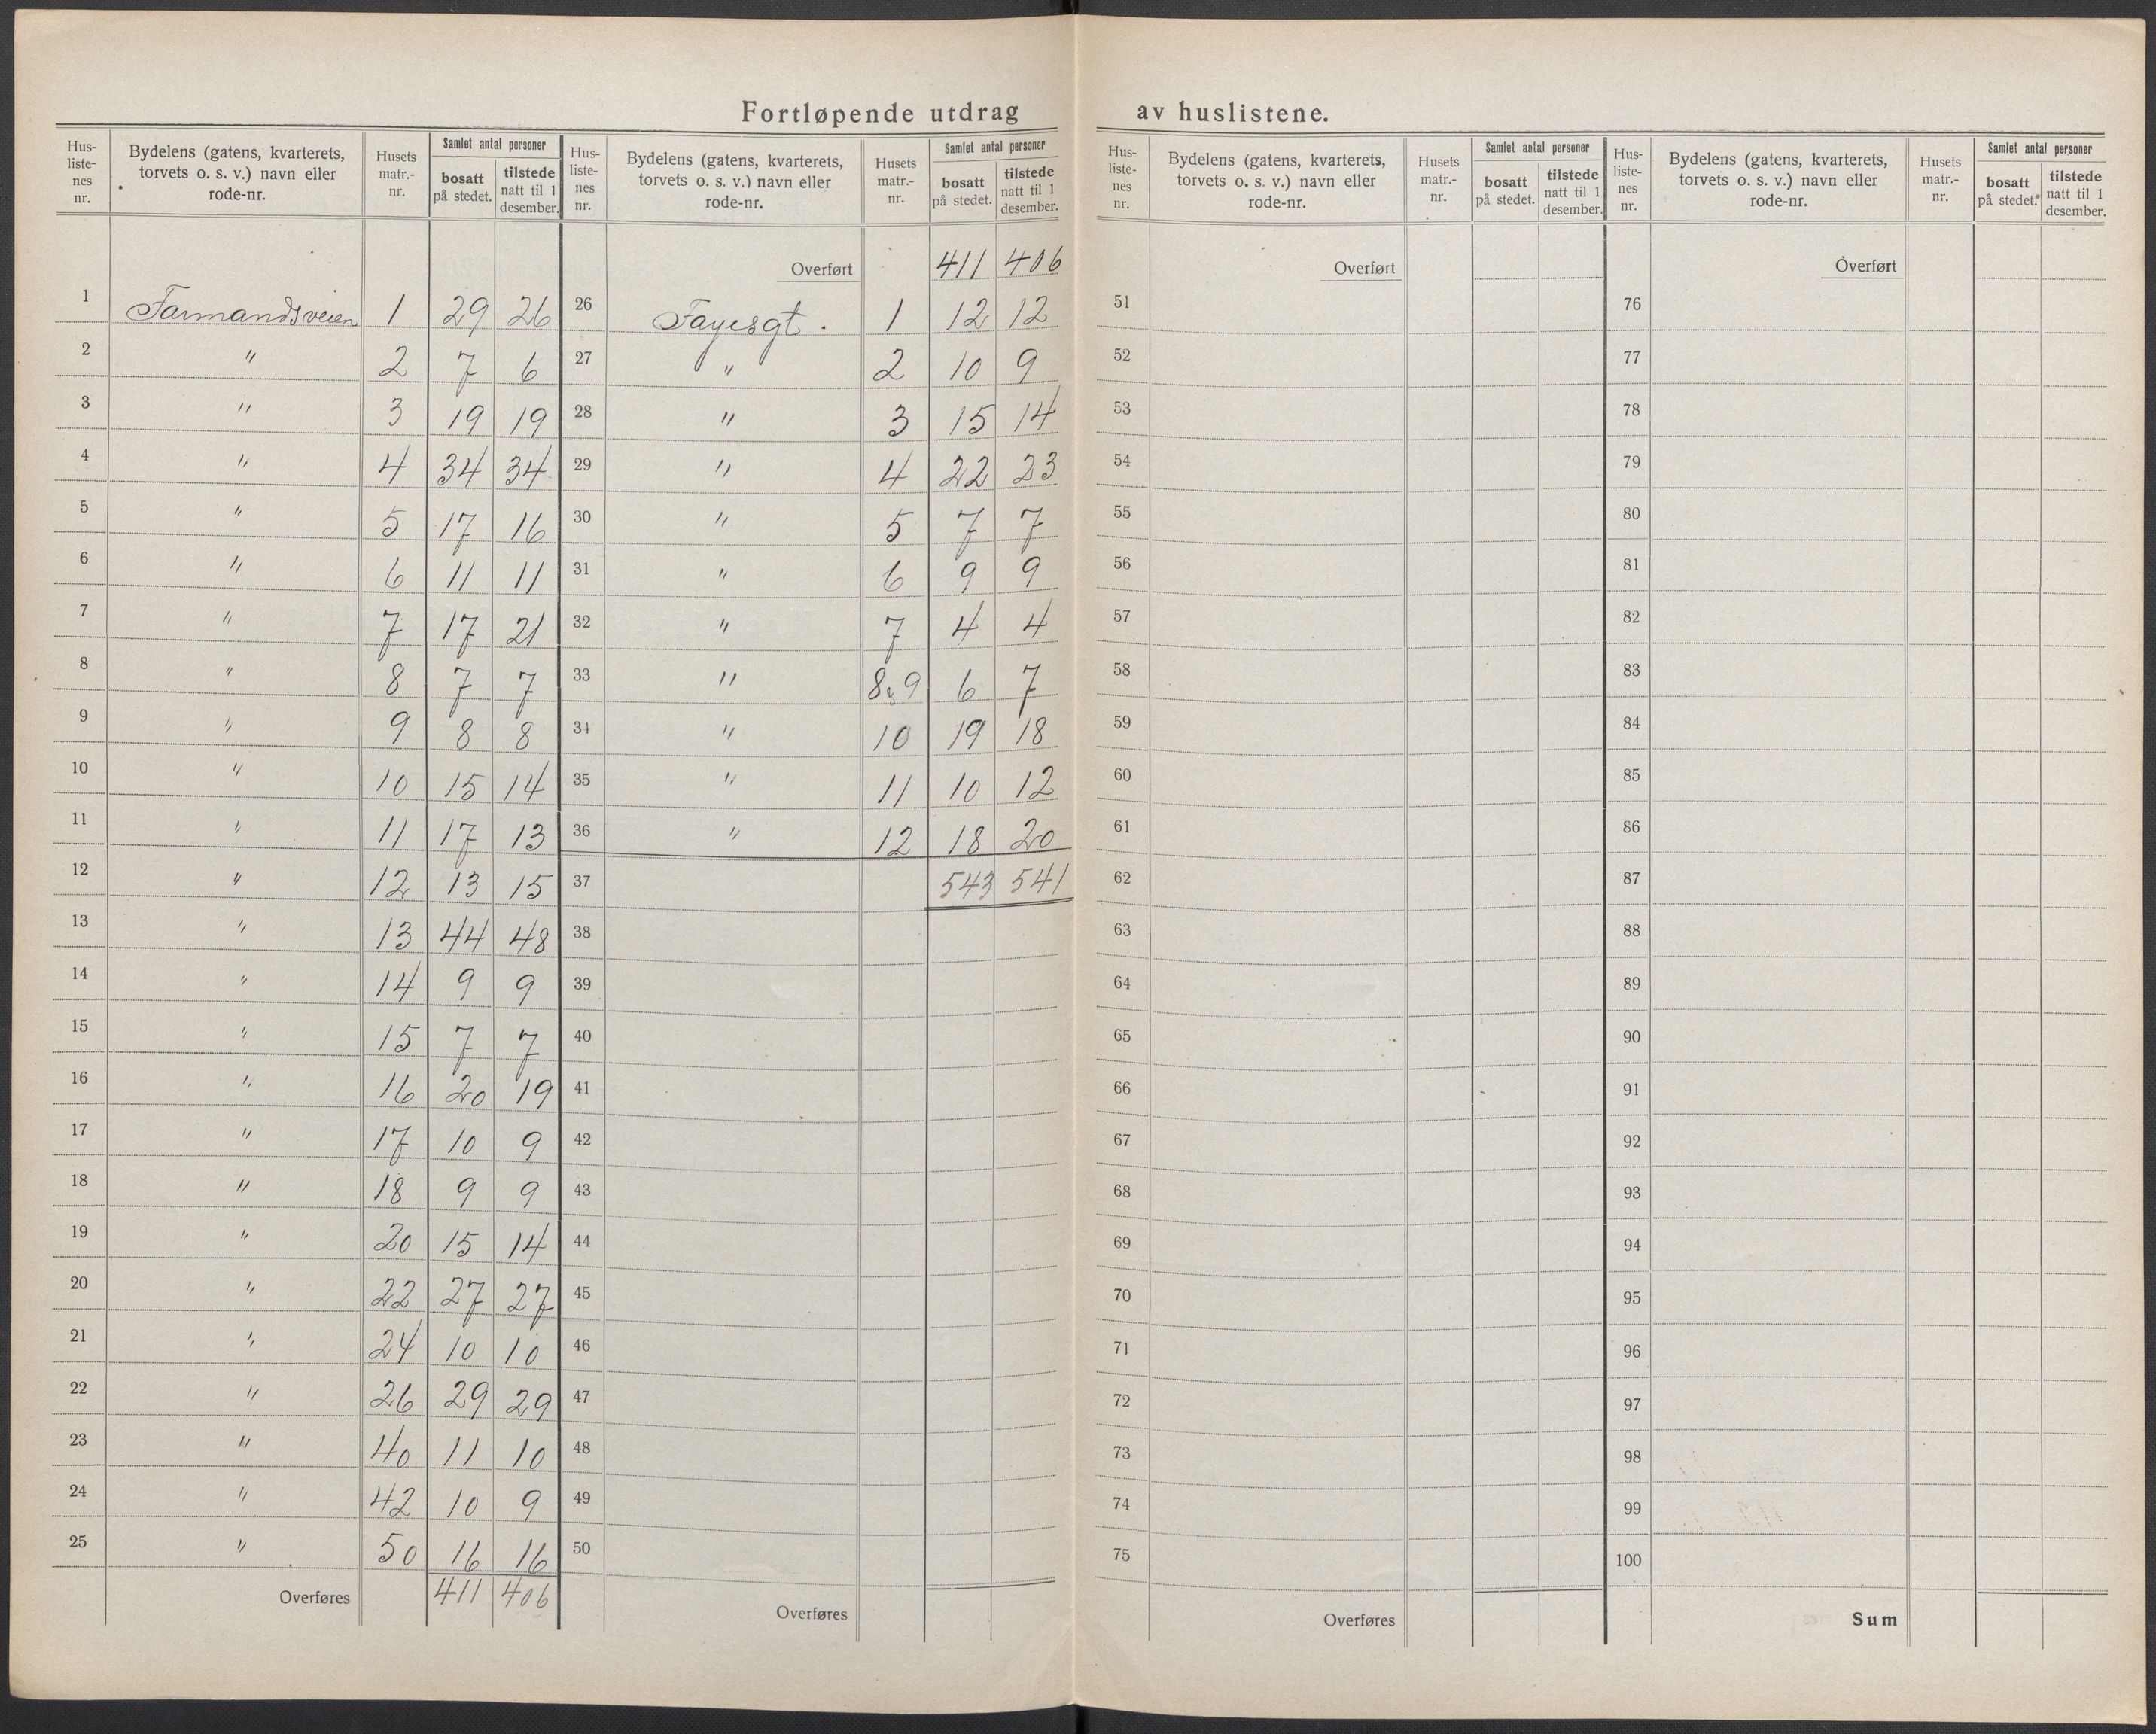 Fortløpende utdrag av huslistene.
Hus-listenes nr. | Bydelens (gatens, kvarterets, torvets o. s. v.) navn eller rode-nr. | Husets matr.-nr. | Samlet antal personer bosatt på stedet. | tilstede natt til 1 desember.
1 Farmandsveien 1 29 26
2 " 2 7 6
3 " 3 19 19
4 " 4 34 34
5 " 5 17 16
6 " 6 11 11
7 " 7 17 21
8 " 8 7 7
9 " 9 8 8
10 " 10 15 14
11 " 11 17 13
12 " 12 13 15
13 " 13 44 48
14 " 14 9 9
15 " 15 7 7
16 " 16 20 19
17 " 17 10 9
18 " 18 9 9
19 " 20 15 14
20 " 22 27 27
21 " 24 10 10
22 " 26 29 29
23 " 40 11 10
24 " 42 10 9
25 " 50 16 16
Overføres 411 406
Hus-listenes nr. | Bydelens (gatens, kvarterets, torvets o. s. v.) navn eller rode-nr. | Husets matr.-nr. | Samlet antal personer bosatt på stedet. | tilstede natt til 1 desember.
Overført 411 406
26 Fayesgt. 1 12 12
27 " 2 10 9
28 " 3 15 14
29 " 4 22 23
30 " 5 7 7
31 " 6 9 9
32 " 7 4 4
33 " 8&9 6 7
34 " 10 19 18
35 " 11 10 12
36 " 12 18 20
37 543 541
38
39
40
41
42
43
44
45
46
47
48
49
50
Overføres
Hus-listenes nr. | Bydelens (gatens, kvarterets, torvets o. s. v.) navn eller rode-nr. | Husets matr.-nr. | Samlet antal personer bosatt på stedet. | tilstede natt til 1 desember.
Overført
51
52
53
54
55
56
57
58
59
60
61
62
63
64
65
66
67
68
69
70
71
72
73
74
75
Overføres
Hus-listenes nr. | Bydelens (gatens, kvarterets, torvets o. s. v.) navn eller rode-nr. | Husets matr.-nr. | Samlet antal personer bosatt på stedet. | tilstede natt til 1 desember.
Overført
76
77
78
79
80
81
82
83
84
85
86
87
88
89
90
91
92
93
94
95
96
97
98
99
100
Sum